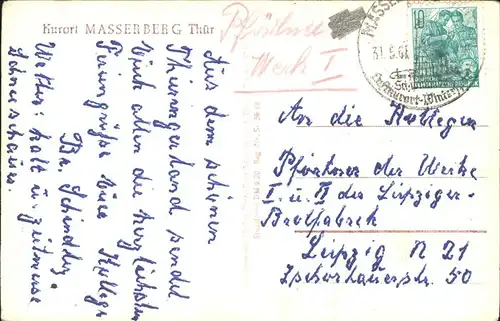 Kurort MASSERBERG Thür
Pförtner
Werk I
MASSE
31.5.61
Luftkurort-Winter
10
Aus dem schönen
Thüringerland sendet
Euch allen die herzlichsten
Feriengrüße Euer Kollege
Br. Schindler.
Wetter: kalt u. zeitweise
Schneeschauer.
An die Kollegen
Pförtner der Werke
I. u. II der Leipziger-
Brotfabrik
Leipzig N 21
Zschortauerstr. 50